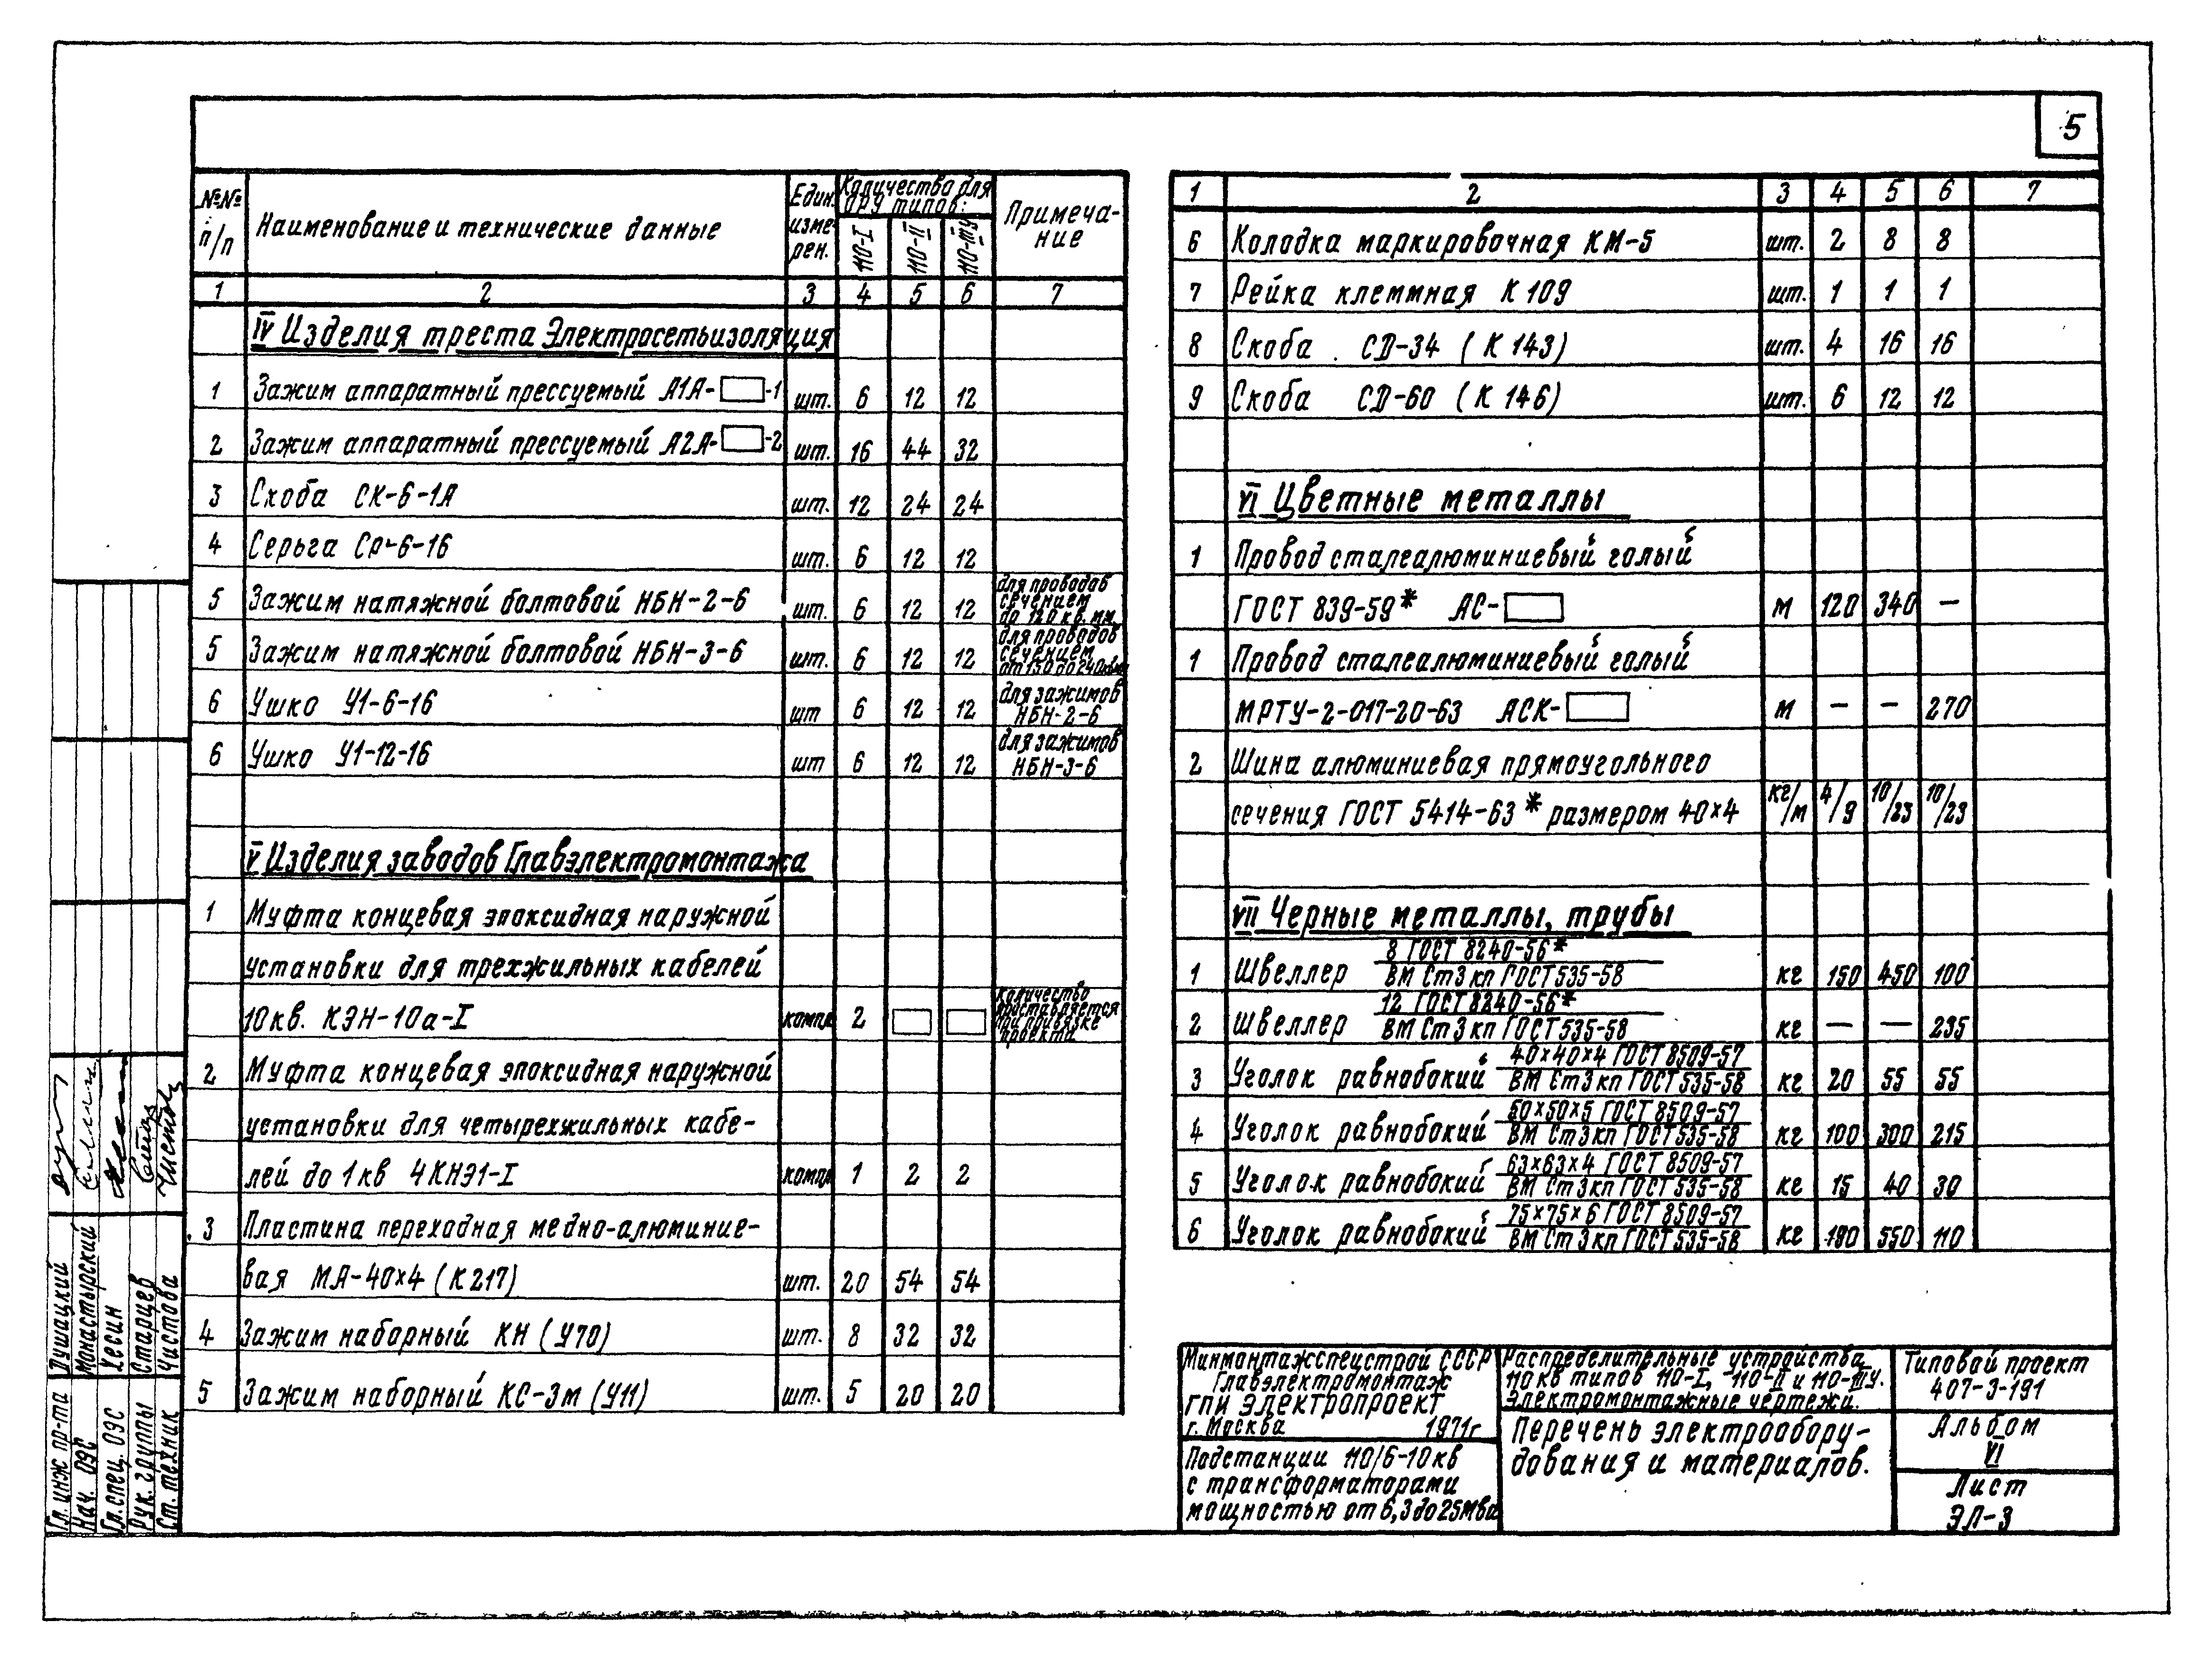 5
№№ п/п | Наименование и технические данные | Един. измерен. | Количество для ОРУ типов: 110-I | 110-II | 110-IIIу | Примечание
1 | 2 | 3 | 4 | 5 | 6 | 7
IV Изделия треста Электросетьизоляция
1 | Зажим аппаратный прессуемый А1А-□-1 | шт. | 6 | 12 | 12
2 | Зажим аппаратный прессуемый А2А-□-2 | шт. | 16 | 44 | 32
3 | Скоба СК-6-1А | шт. | 12 | 24 | 24
4 | Серьга Ср-6-16 | шт. | 6 | 12 | 12
5 | Зажим натяжной болтовой НБН-2-6 | шт. | 6 | 12 | 12 | для проводов сечением до 120 кв. мм
5 | Зажим натяжной болтовой НБН-3-6 | шт. | 6 | 12 | 12 | для проводов сечением от 150 до 240 кв.мм
6 | Ушко У1-6-16 | шт | 6 | 12 | 12 | для зажимов НБН-2-6
6 | Ушко У1-12-16 | шт | 6 | 12 | 12 | для зажимов НБН-3-6
V Изделия заводов Главэлектромонтажа
1 | Муфта концевая эпоксидная наружной
установки для трехжильных кабелей
10кв. КЭН-10а-I | компл | 2 | □ | □ | количество проставляется при привязке проекта
2 | Муфта концевая эпоксидная наружной
установки для четырехжильных кабе-
лей до 1кв 4КНЭ1-I | компл | 1 | 2 | 2
3 | Пластина переходная медно-алюминие-
вая МА-40×4 (К217) | шт. | 20 | 54 | 54
4 | Зажим наборный КН (У70) | шт. | 8 | 32 | 32
5 | Зажим наборный КС-3м (У11) | шт. | 5 | 20 | 20
1 | 2 | 3 | 4 | 5 | 6 | 7
6 | Колодка маркировочная КМ-5 | шт. | 2 | 8 | 8
7 | Рейка клеммная К109 | шт. | 1 | 1 | 1
8 | Скоба СД-34 (К143) | шт. | 4 | 16 | 16
9 | Скоба СД-60 (К146) | шт. | 6 | 12 | 12
VI Цветные металлы
1 | Провод сталеалюминиевый голый
ГОСТ 839-59* АС-□ | м | 120 | 340 | —
1 | Провод сталеалюминиевый голый
МРТУ-2-017-20-63 АСК-□ | м | — | — | 270
2 | Шина алюминиевая прямоугольного
сечения ГОСТ 5414-63* размером 40×4 | кг/м | 4/9 | 10/23 | 10/23
VII Черные металлы, трубы
1 | Швеллер 8 ГОСТ 8240-56* / ВМ Ст3кп ГОСТ535-58 | кг | 150 | 450 | 100
2 | Швеллер 12 ГОСТ 8240-56* / ВМ Ст3кп ГОСТ535-58 | кг | — | — | 235
3 | Уголок равнобокий 40×40×4 ГОСТ 8509-57 / ВМ Ст3кп ГОСТ535-58 | кг | 20 | 55 | 55
4 | Уголок равнобокий 50×50×5 ГОСТ 8509-57 / ВМ Ст3кп ГОСТ535-58 | кг | 100 | 300 | 215
5 | Уголок равнобокий 63×63×4 ГОСТ 8509-57 / ВМ Ст3кп ГОСТ535-58 | кг | 15 | 40 | 30
6 | Уголок равнобокий 75×75×6 ГОСТ 8509-57 / ВМ Ст3кп ГОСТ535-58 | кг | 190 | 550 | 110
Минмонтажспецстрой СССР
Главэлектромонтаж
ГПИ ЭЛЕКТРОПРОЕКТ
г. Москва 1971г
Подстанции 110/6-10кв
с трансформаторами
мощностью от 6,3 до 25 Мва
Распределительные устройства
110кв типов 110-I, 110-II и 110-IIIу.
Электромонтажные чертежи.
Перечень электрообору-
дования и материалов.
Типовой проект
407-3-191
Альбом
VI
Лист
ЭЛ-3
Гл. инж пр-та Душацкий
Нач. ОЭС Монастырский
Гл. спец. ОЭС Хесин
Рук. группы Старцев
Ст. техник Чистова